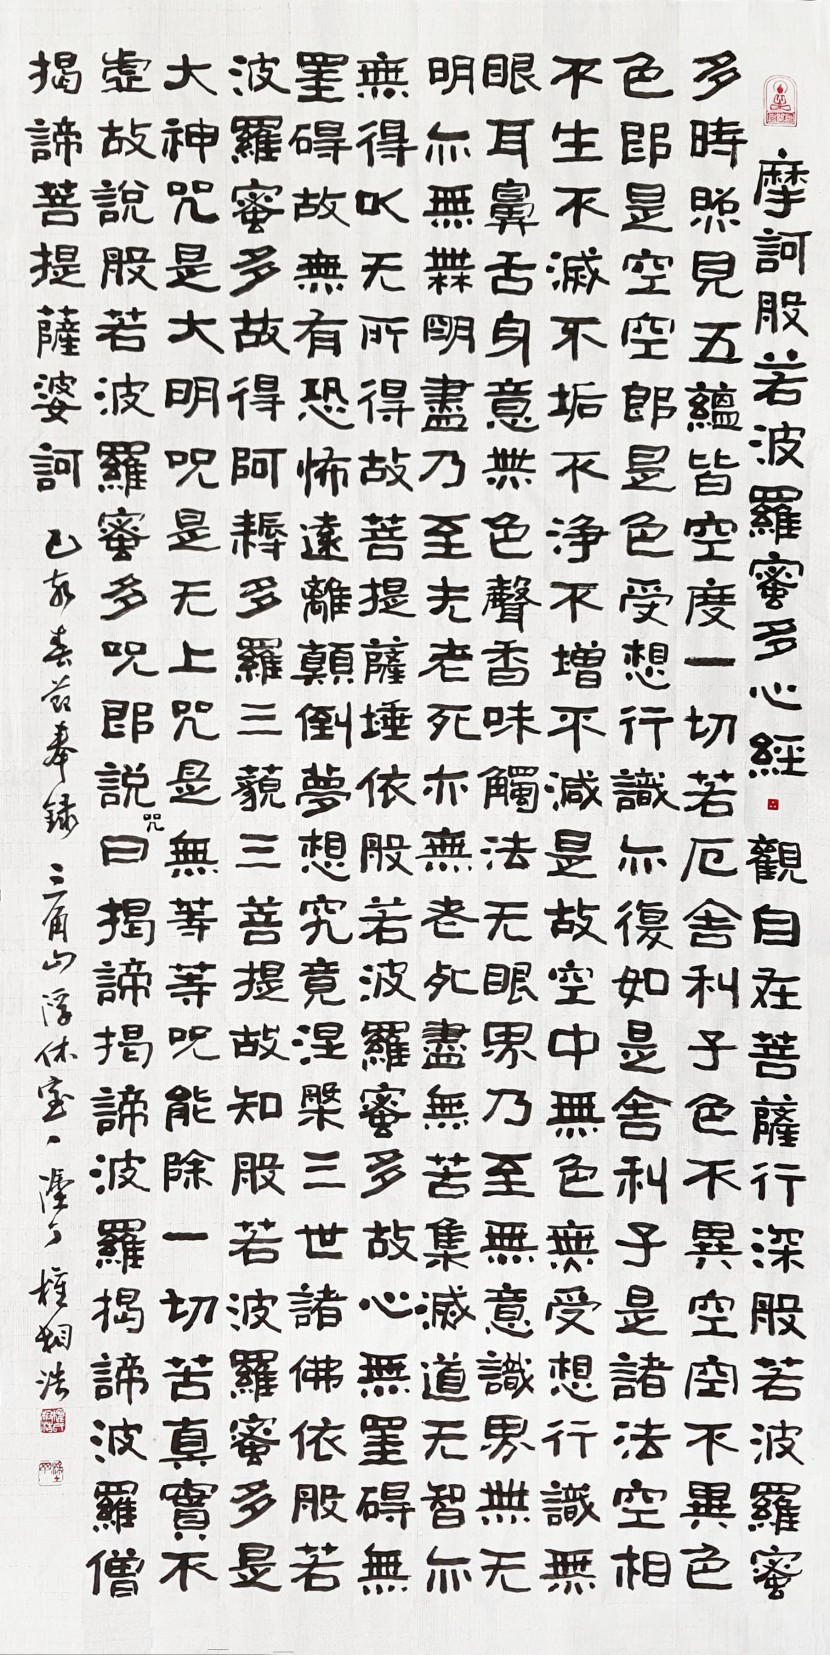 摩訶般若波羅蜜多心經 觀自在菩薩行深般若波羅蜜
多時照見五蘊皆空度一切苦厄舍利子色不異空空不異色
色即是空空即是色受想行識亦復如是舍利子是諸法空相
不生不滅不垢不淨不增不減是故空中無色無受想行識無
眼耳鼻舌身意無色聲香味觸法无眼界乃至無意識界無无
明亦無無明盡乃至无老死亦無老死盡無苦集滅道无智亦
無得以无所得故菩提薩埵依般若波羅蜜多故心無罣碍無
罣碍故無有恐怖遠離顛倒夢想究竟涅槃三世諸佛依般若
波羅蜜多故得阿耨多羅三藐三菩提故知般若波羅蜜多是
大神咒是大明呪是无上咒是無等等呪能除一切苦真實不
虛故說般若波羅蜜多呪即說咒曰揭諦揭諦波羅揭諦波羅僧
揭諦菩提薩婆訶 己亥春節奉錄 三角山浮休室 權相浩